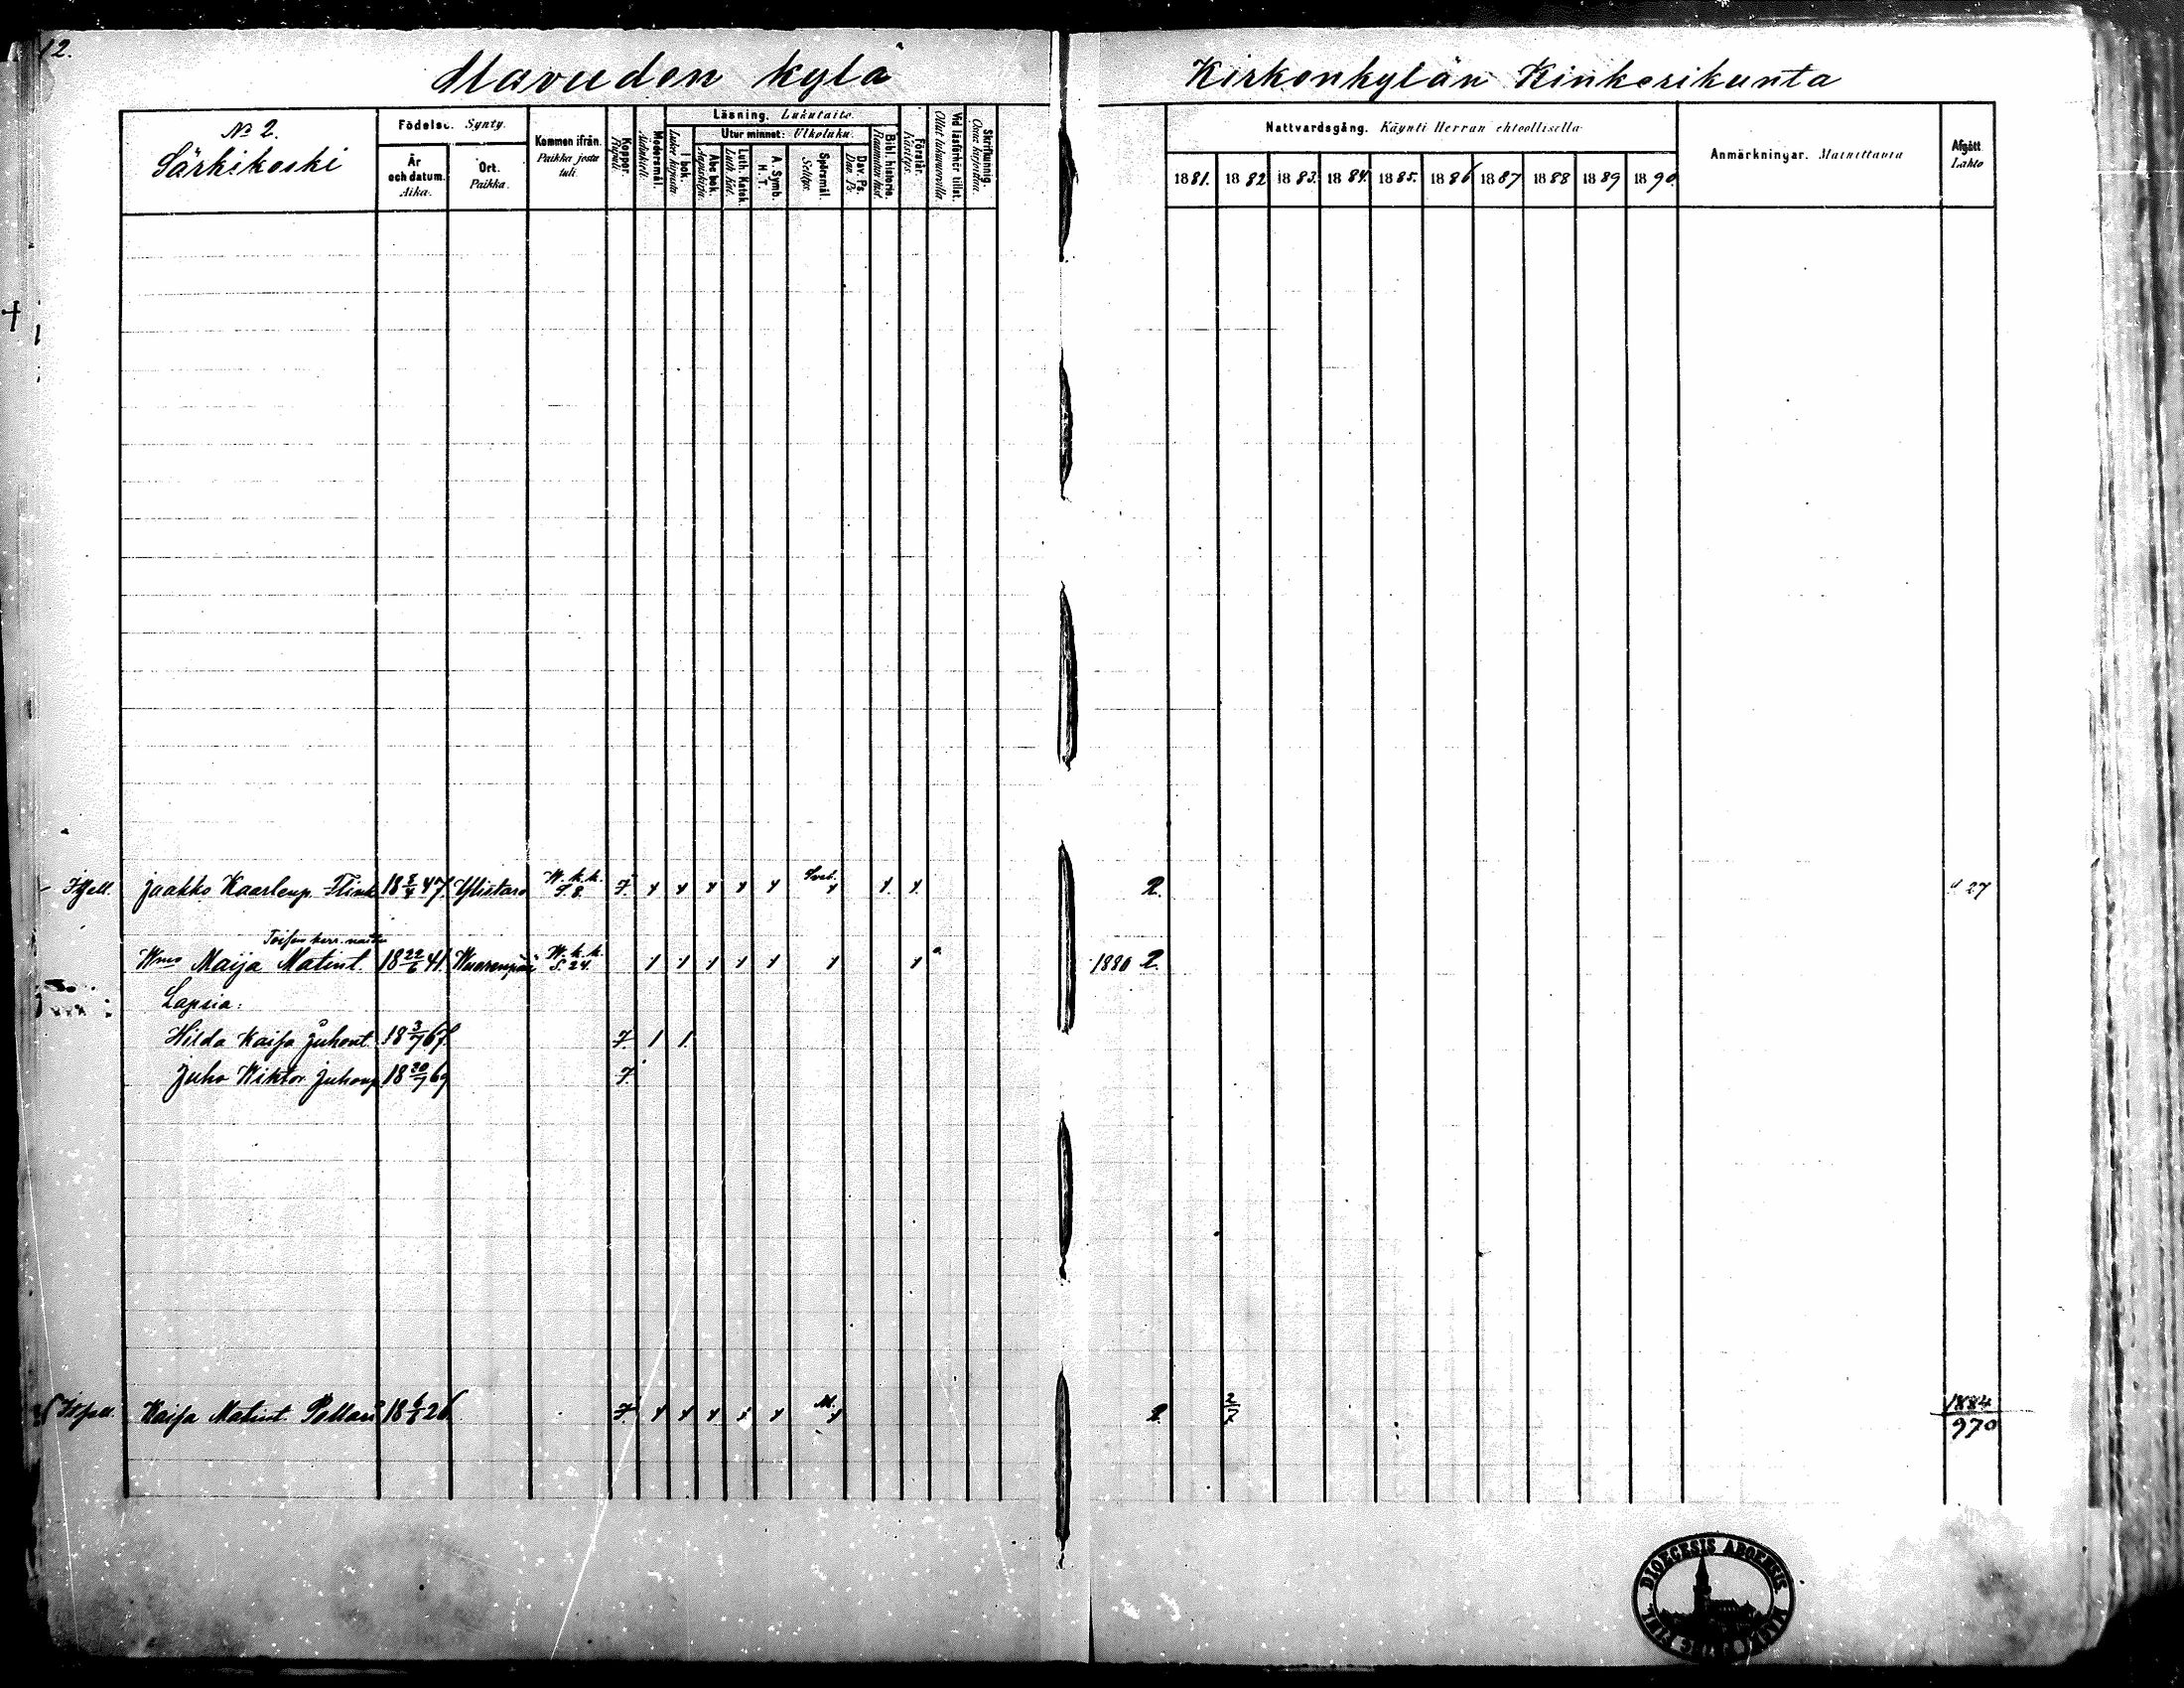 12.
Alavuden kylä
Kirkonkylän Kinkerikunta
№ 2.
Särkikoski
Födelse. Synty.
År och datum. Aika.
Ort. Paikka.
Kommen ifrån. Paikka josta tuli.
Koppor. Rupuli.
Modersmål. Äidinkieli.
Läsning. Lukutaito.
I bok. Luku kirjasta
Utur minnet: Ulkoluku.
Abc bok. Aapiskirja.
Luth. Katek. Luth. Kat.
A. Symb. H. T.
Spörsmål. Selitys.
Dav. Ps. Dav. Ps.
Bibl. historie. Raamatun hist.
Förstår. Käsitys.
Vid läsförhör tillst. Ollut lukuvuoroilla
Skrifkunnig. Osaa kirjoittaa.
Nattvardsgång. Käynti Herran ehtoollisella
1881. 1882 1883. 1884. 1885. 1886 1887 1888 1889 1890.
Anmärkningar. Muistettavia
Afgått Lähtö
Itsell. Jaakko Kaarlenp. Flink 18 8/4 47. Ylistaro W. k. k. S. 8. 7. Sveb. 2. 27
Toisen kerr. naitu
Wmo Maija Matint. 18 22/6 41. W. k. k. S. 24. 1880 2.
Lapsia:
Hilda Kaisa Juhont. 18 3/7 67. 7. 1 1.
Juho Wiktor Juhonp. 18 30/7 69 7.
Itsell. Kaisa Matint. Pollari 18 6/5 26 7. M. 2. 2/7 1884/970
DIOECESIS ABOENSIS